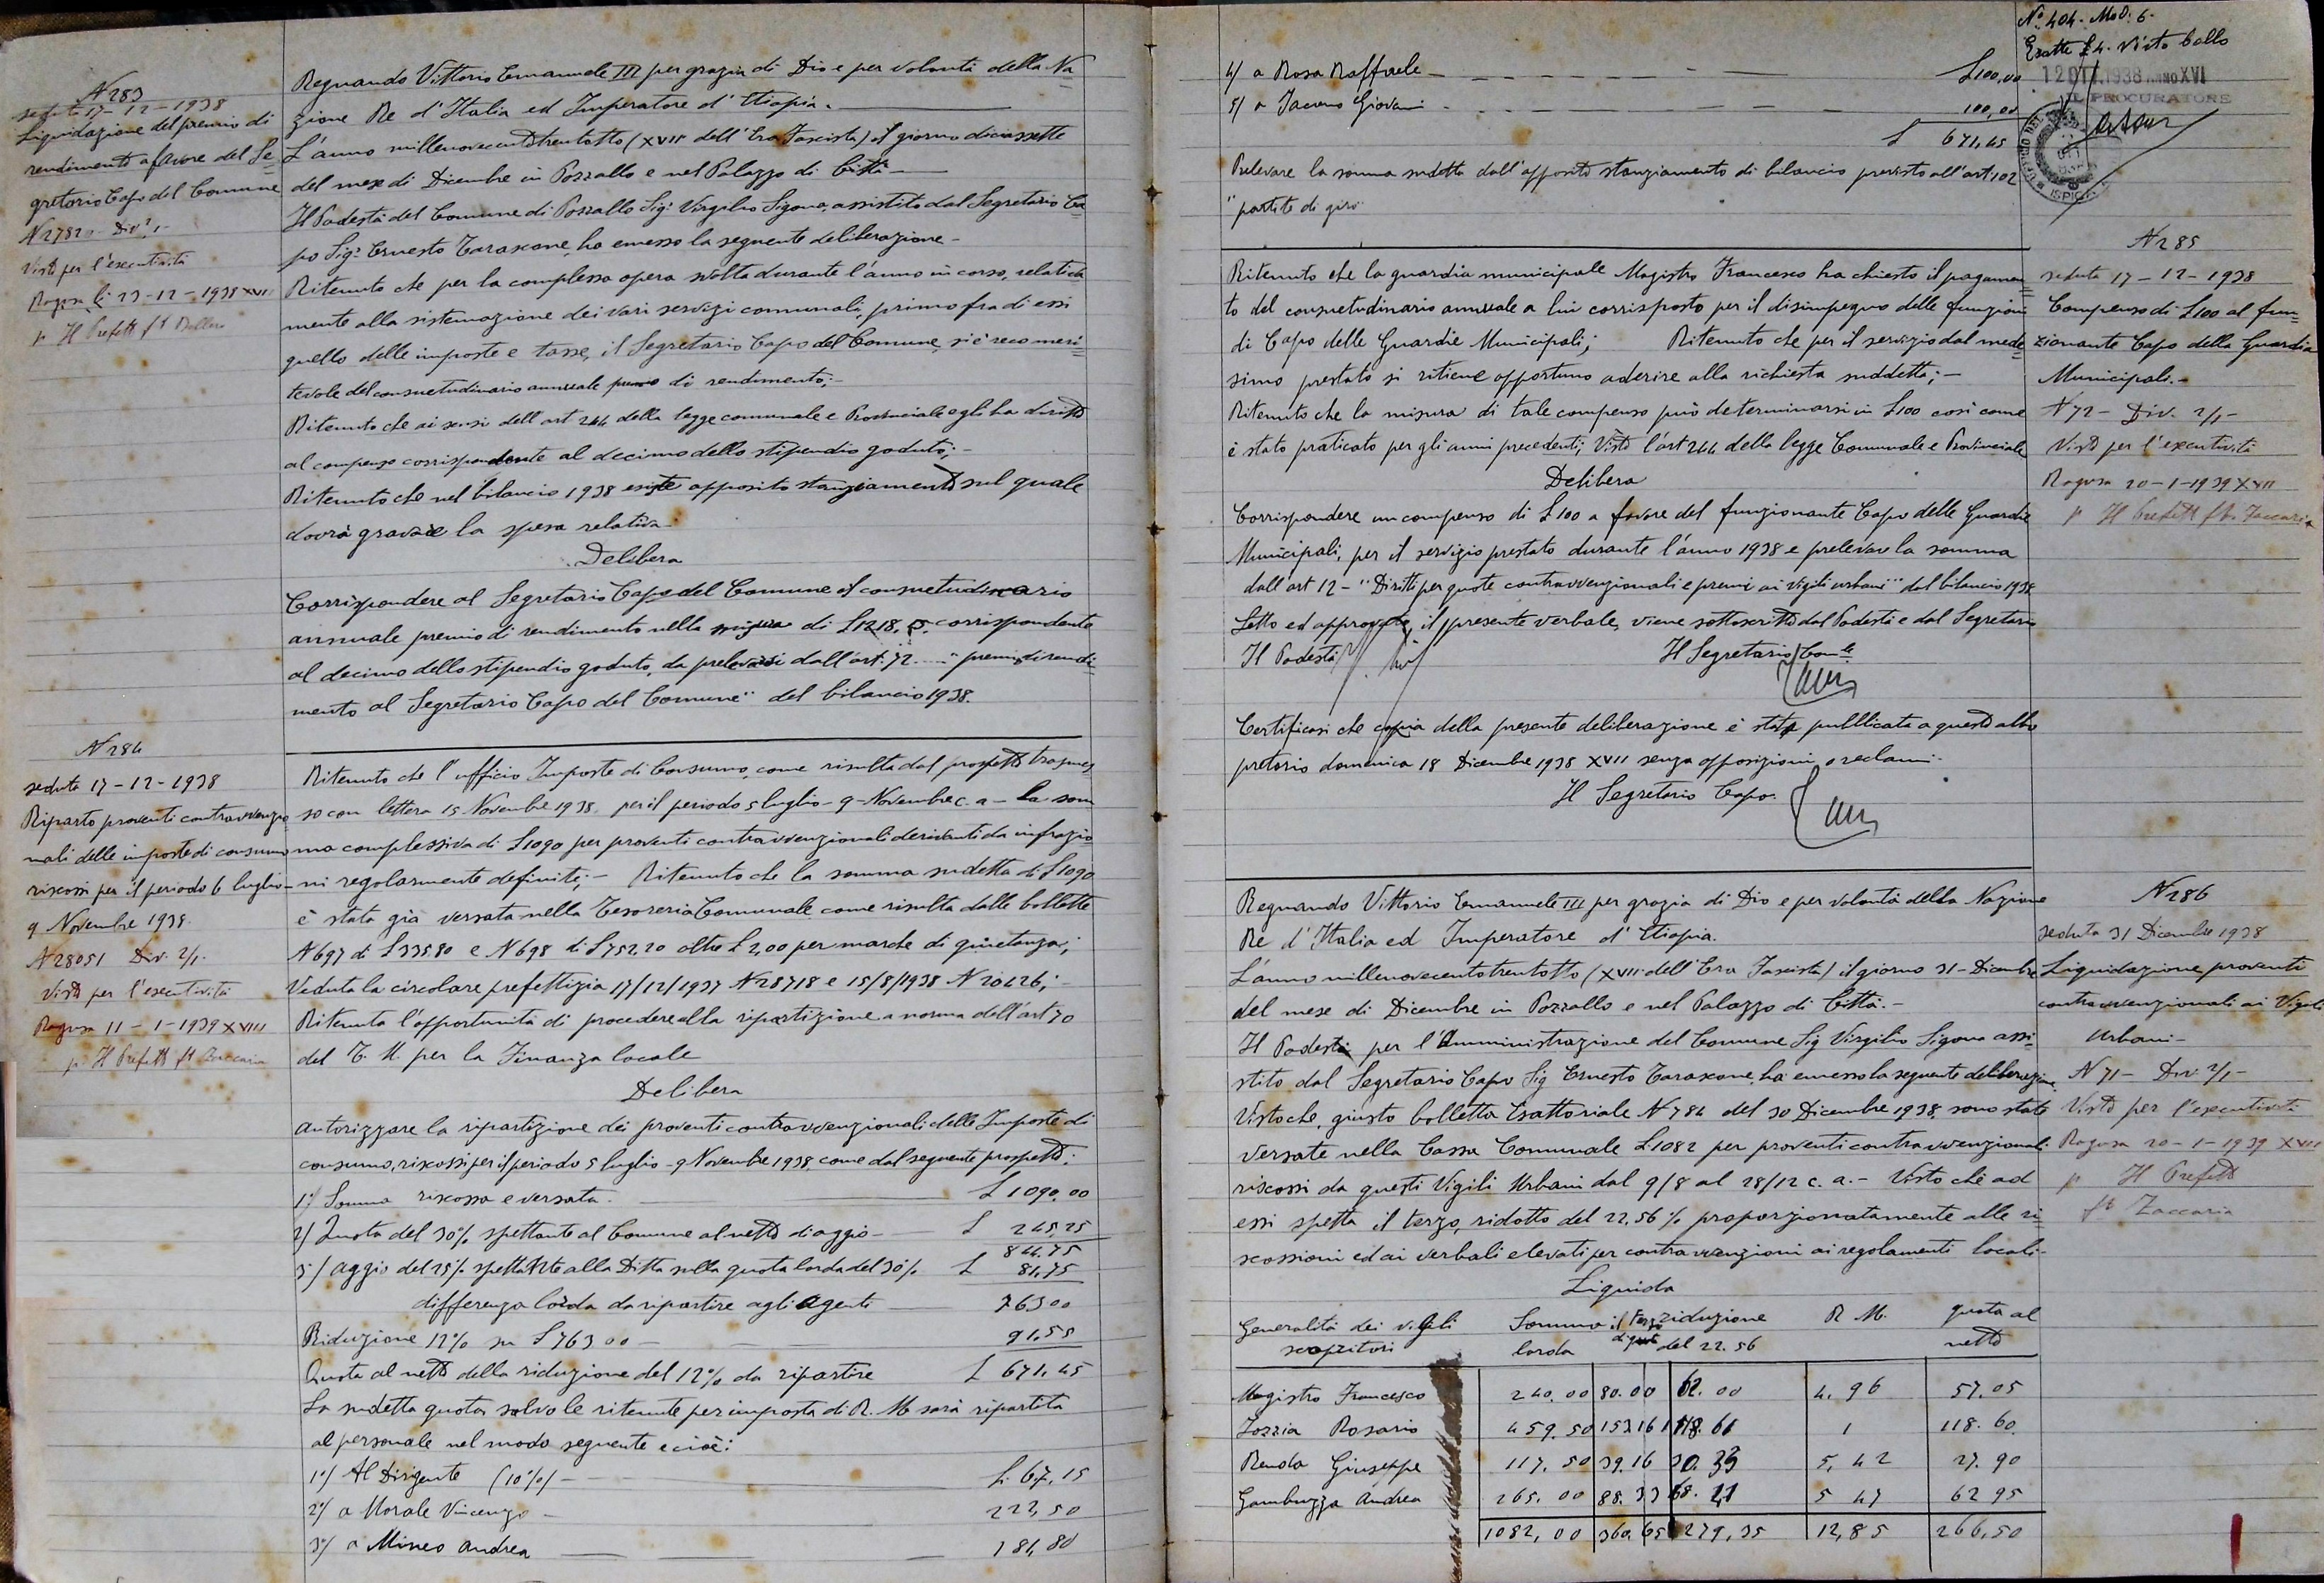 N 283
seduta 17-12-1938
Liquidazione del premio di
rendimento a favore del Se=
gretario Capo del Comune
N 27820 - Div 2/1-
Visto per l'esecutività
Ragusa li 23-12-1938 XVII
p Il Prefetto
Regnando Vittorio Emanuele III per grazia di Dio e per volontà della Na
zione Re d'Italia ed Imperatore d'Etiopia.
L'anno millenovecentotrentotto (XVII dell'Era Fascista) il giorno diciassette
del mese di Dicembre in Pozzallo e nel Palazzo di Città
Il Podestà del Comune di Pozzallo Sig: Virgilio Sigona, assistito dal Segretario Ca
po Sig: Ernesto Tarascone, ha emesso la seguente deliberazione-
Ritenuto che per la complessa opera svolta durante l'anno in corso, relativa
mente alla sistemazione dei vari servizi comunali, primo fra di essi
quello delle imposte e tasse, il Segretario Capo del Comune, si è reso meri=
tevole del consuetudinario annuale premio di rendimento;-
Ritenuto che ai sensi dell'art 244 della legge comunale e Provinciale egli ha diritto
al compenso corrispondente al decimo dello stipendio goduto;-
Ritenuto che nel bilancio 1938 esiste apposito stanziamento sul quale
dovrà gravare la spesa relativa-
Delibera
Corrispondere al Segretario Capo del Comune il consuetudinario
annuale premio di rendimento nella misura di £1218, corrispondente
al decimo dello stipendio goduto, da prelevarsi dall'art. 72 " premi di rendi
mento al Segretario Capo del Comune" del bilancio 1938.
N 284
seduta 17-12-1938
Riparto proventi contravvenzio
nali delle imposte di consumo
riscossi per il periodo 6 luglio-
9 Novembre 1938.
N 28051 Div. 2/1.
Visto per l'esecutività
Ragusa 11-1-1939 XVIII
p. Il Prefetto ft Zaccaria
Ritenuto che l'ufficio Imposte di Consumo, come risulta dal prospetto trasmes
so con lettera 15 Novembre 1938, per il periodo 5 luglio-9-Novembre c.a- la som
ma complessiva di £1090 per proventi contravvenzionali derivanti da infrazio
ni regolarmente definite;- Ritenuto che la somma sudetta di £1090
è stata già versata nella Tesoreria Comunale come risulta dalle bollette
N 697 di £335.80 e N 698 di £752,20 oltre £2,00 per marche di quietanza;
Veduta la circolare prefettizia 17/12/1937 N 28718 e 15/8/1938 N 20426;-
Ritenuta l'opportunità di procedere alla ripartizione a norma dell'art 70
del T. U. per la Finanza locale
Delibera
autorizzare la ripartizione dei proventi contravvenzionali delle Imposte di
consumo, riscossi per il periodo 5 luglio-9 Novembre 1938, come dal seguente prospetto:
1°/ Somma riscossa e versata. £ 1090,00
2/ Quota del 30% spettante al Comune al netto di aggio- £ 245,25
844.75
3°/ Aggio del 25% spettante alla Ditta sulla quota lorda del 30% £ 81.75
differenza lorda da ripartire agli agenti 763 00
Riduzione 12% su £763 00 91.55
Quota al netto della riduzione del 12% da ripartire £ 671.45
La sudetta quota, salvo le ritenute per imposta di R. M. sarà ripartita
al personale nel modo seguente e cioè:
1°/ Al Dirigente (10%)- £. 67,15
2°/ a Morale Vincenzo - 222,50
3°/ a Mineo Andrea 181,80
N° 404. Mod: 6.
Esatte £ 4. Visto bollo
12 OTT. 1938 ANNO XVI
IL PROCURATORE
ISPICA
4/ a Rosa Raffaele £100,00
5/ a Iacono Giovani 100,00
£ 671,45
Prelevare la somma sudetta dall'apposito stanziamento di bilancio previsto all'art: 102
"partite di giro"
N 285
seduta 17-12-1938
Compenso di £100 al fun=
zionante Capo della Guardia
Municipali.-
N 72- Div. 2/1-
Visto per l'esecutività
Ragusa 20-1-1939 XVII
p Il Prefetto ft. Zaccaria
Ritenuto che la guardia municipale Magistro Francesco ha chiesto il pagamen
to del consuetudinario annuale a lui corrisposto per il disimpegno delle funzioni
di Capo delle Guardie Municipali; Ritenuto che per il servizio dal mede=
simo prestato si ritiene opportuno aderire alla richiesta suddetta;-
Ritenuto che la misura di tale compenso può determinarsi in £100 così come
è stato praticato per gli anni precedenti; Visto l'art 244 della legge Comunale e Provinciale
Delibera
Corrispondere un compenso di £100 a favore del funzionante Capo delle Guardie
Municipali, per il servizio prestato durante l'anno 1938 e prelevare la somma
dall'art 12-"Diritti per quote contravvenzionali e premi ai Vigili urbani" del bilancio 1938
Letto ed approvato, il presente verbale, viene sottoscritto dal Podestà e dal Segretario
Il Podestà Il Segretario Com.le
Certificasi che copia della presente deliberazione è stata pubblicata a questo albo
pretorio domenica 18 Dicembre 1938 XVII senza opposizioni o reclami-
Il Segretario Capo.
N 286
seduta 31 Dicembre 1938
Liquidazione proventi
contravvenzionali ai Vigili
Urbani-
N 71- Div. 2/1-
Visto per l'esecutività
Ragusa 20-1-1939 XVII
p Il Prefetto
ft Zaccaria
Regnando Vittorio Emanuele III per grazia di Dio e per volontà della Nazione
Re d'Italia ed Imperatore d'Etiopia.
L'anno millenovecentotrentotto (XVII dell'Era Fascista) il giorno 31-Dicembre
del mese di Dicembre in Pozzallo e nel Palazzo di Città.-
Il Podestà per l'Amministrazione del Comune Sig Virgilio Sigona assi
stito dal Segretario Capo Sig Ernesto Tarascone, ha emesso la seguente deliberazione
Visto che, giusto bolletta Esattoriale N 784 del 30 Dicembre 1938, sono state
versate nella Cassa Comunale £1082 per proventi contravvenzionali
riscossi da questi Vigili Urbani dal 9/8 al 28/12 c.a.- Visto che ad
essi spetta il terzo, ridotto del 22,56% proporzionatamente alle ri=
scossioni ed ai verbali elevati per contravvenzioni ai regolamenti locali-
Liquida
Generalità dei vigili scopritori Somma lorda il terzo riduzione del 22.56 R M. quota al netto
Magistro Francesco 240.00 80.00 62.00 4.96 57.05
Zozzia Rosario 459.50 153.16 118.61 1 118.60
Renda Giuseppe 117.50 39.16 30.33 5,42 27.90
Gambuzza Andrea 265.00 88.33 68.41 5 47 62 95
1082,00 360.65 279,35 12,85 266,50